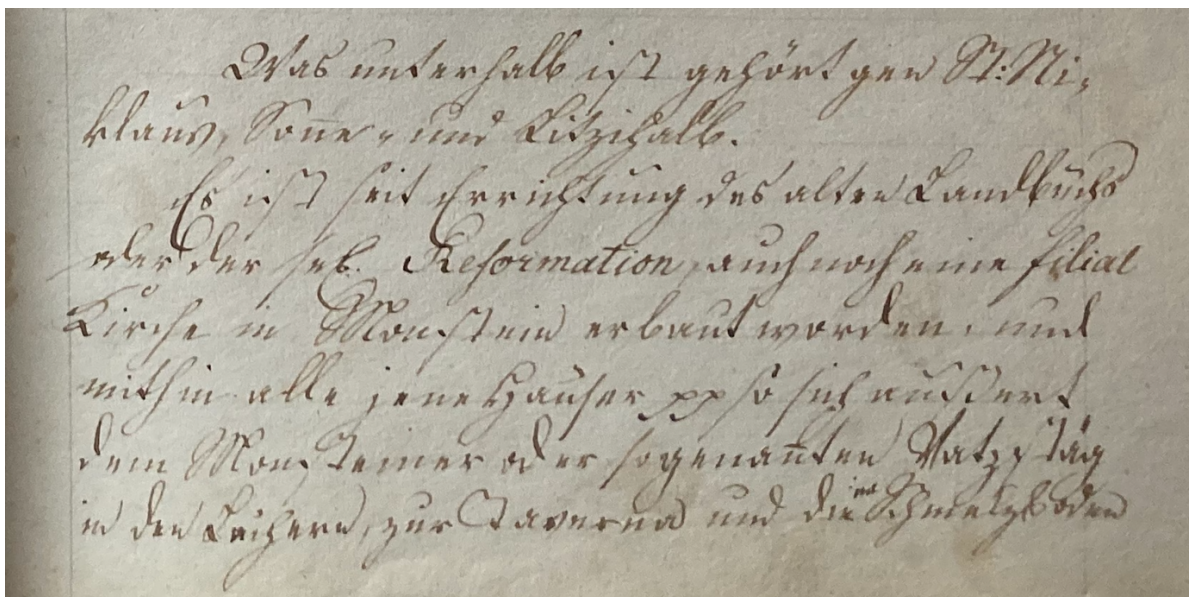 Was unterhalb ist gehört gen St: Ni-
klaus, Soñe- und Litzihalb.
Es ist seit Errichtung des alten Landbuchs
oder der sel. Reformation, auch noch eine filial
Kirche in Monstein erbaut worden, und
mithin alle jene Häuser pp so sich aussert
dem Monsteiner oder sogenañten Vatzstäg
in den Lächern, zur Taverna und die im Schmelzboden